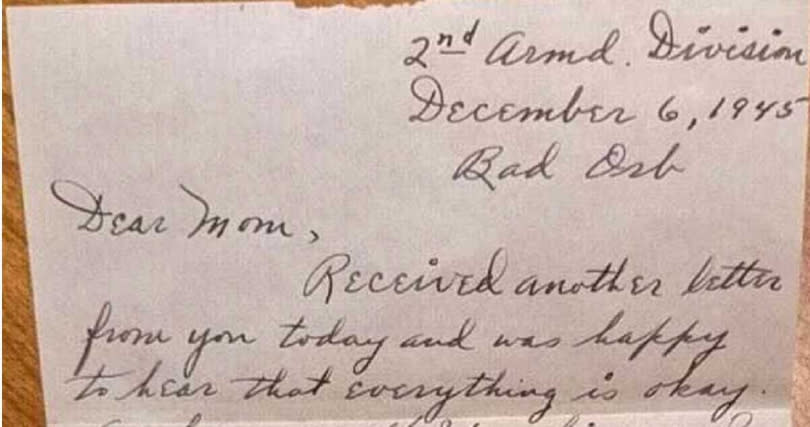 2nd Armd. Division
December 6, 1945
Bad Orb
Dear Mom,
Received another letter
from you today and was happy
to hear that everything is okay.